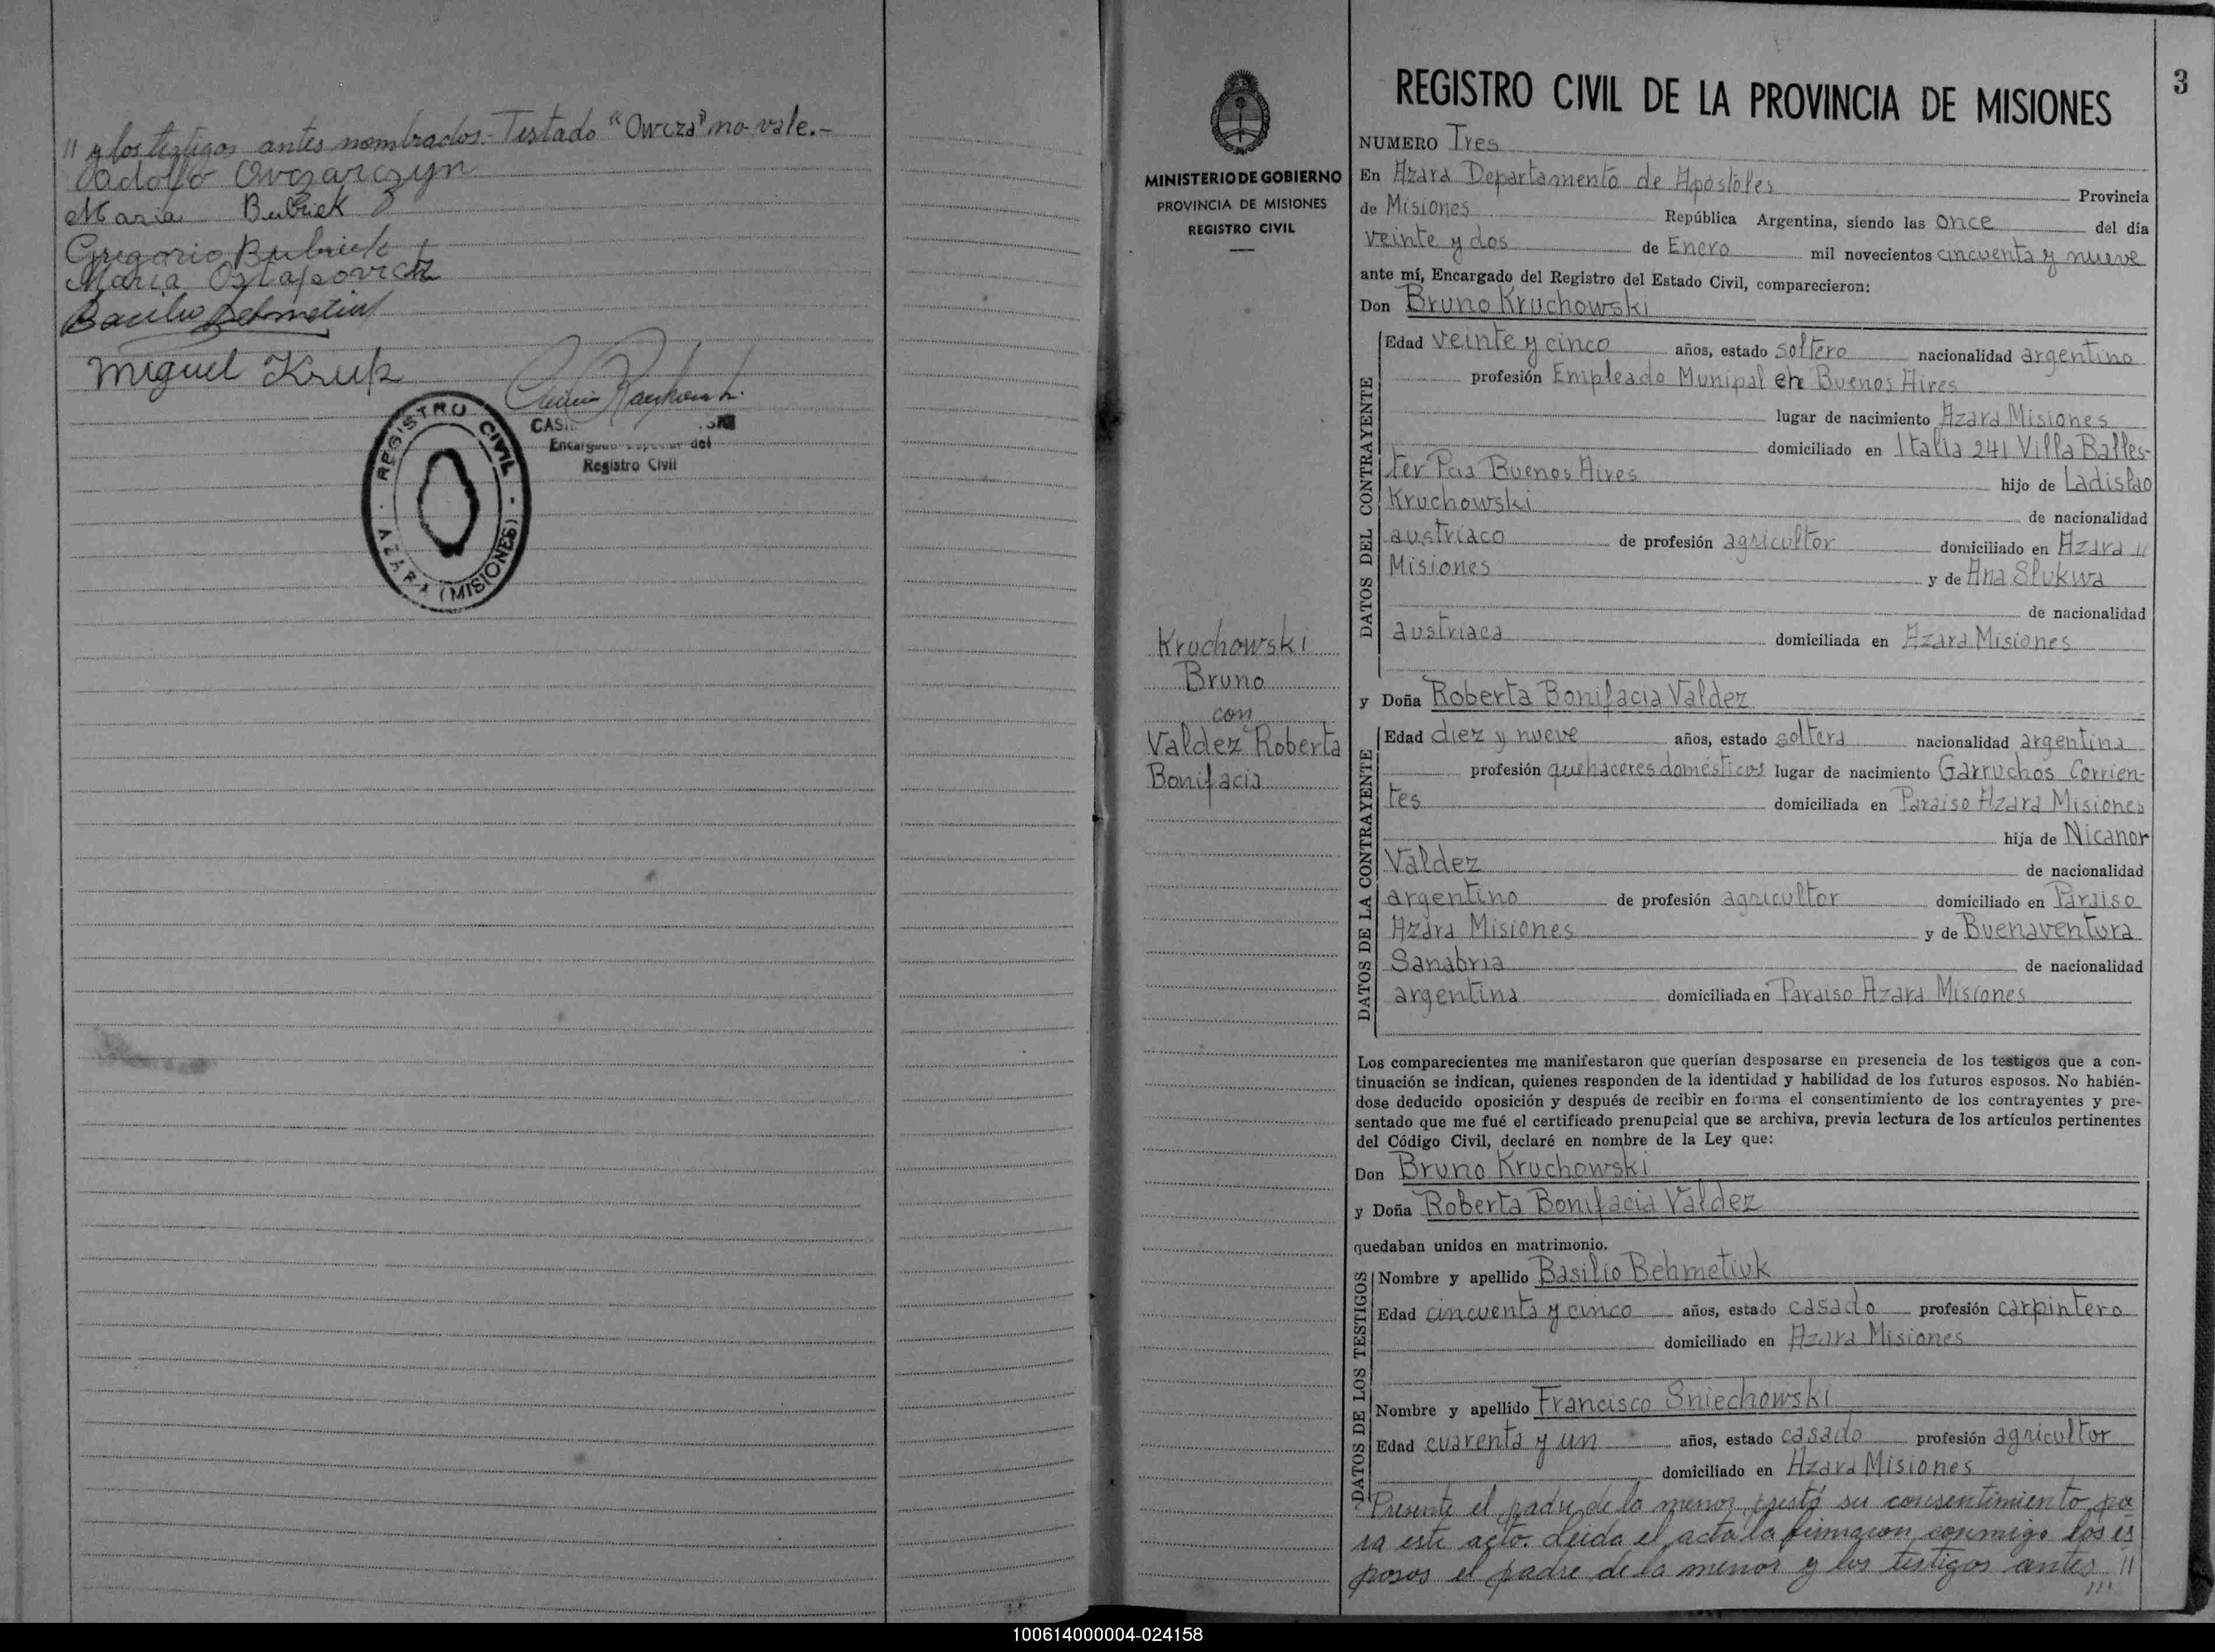 // y los testigos antes nombrados.- Testado "Owcza" no vale.-
Adolfo Owczarczyn
Maria Bubiek
Gregorio Bubiek
Maria Oztapovicz
Basilio Behmetiuk
Miguel Kruk
CASI
Encargado Superior del
Registro Civil
REGISTRO CIVIL
AZARA (MISIONES)
MINISTERIO DE GOBIERNO
PROVINCIA DE MISIONES
REGISTRO CIVIL
Kruchowski
Bruno
con
Valdez Roberta
Bonifacia
3
REGISTRO CIVIL DE LA PROVINCIA DE MISIONES
NUMERO Tres
En Azara Departamento de Apóstoles Provincia
de Misiones República Argentina, siendo las once del día
veinte y dos de Enero mil novecientos cincuenta y nueve
ante mí, Encargado del Registro del Estado Civil, comparecieron:
Don Bruno Kruchowski
DATOS DEL CONTRAYENTE
Edad veinte y cinco años, estado soltero nacionalidad argentino
profesión Empleado Munipal en Buenos Aires
lugar de nacimiento Azara Misiones
domiciliado en Italia 241 Villa Balles-
ter Pcia Buenos Aires hijo de Ladislao
Kruchowski de nacionalidad
austríaco de profesión agricultor domiciliado en Azara
Misiones y de Ana Slukwa
de nacionalidad
austríaca domiciliada en Azara Misiones
y Doña Roberta Bonifacia Valdez
DATOS DE LA CONTRAYENTE
Edad diez y nueve años, estado soltera nacionalidad argentina
profesión quehaceres domésticos lugar de nacimiento Garruchos Corrien-
tes domiciliada en Paraiso Azara Misiones
hija de Nicanor
Valdez de nacionalidad
argentino de profesión agricultor domiciliado en Paraiso
Azara Misiones y de Buenaventura
Sanabria de nacionalidad
argentina domiciliada en Paraiso Azara Misiones
Los comparecientes me manifestaron que querían desposarse en presencia de los testigos que a con-
tinuación se indican, quienes responden de la identidad y habilidad de los futuros esposos. No habién-
dose deducido oposición y después de recibir en forma el consentimiento de los contrayentes y pre-
sentado que me fué el certificado prenupcial que se archiva, previa lectura de los artículos pertinentes
del Código Civil, declaré en nombre de la Ley que:
Don Bruno Kruchowski
y Doña Roberta Bonifacia Valdez
quedaban unidos en matrimonio.
DATOS DE LOS TESTIGOS
Nombre y apellido Basilio Behmetiuk
Edad cincuenta y cinco años, estado casado profesión carpintero
domiciliado en Azara Misiones
Nombre y apellido Francisco Sniechowski
Edad cuarenta y un años, estado casado profesión agricultor
domiciliado en Azara Misiones
Presente el padre de la menor prestó su consentimiento pa-
ra este acto. Leída el acta la firmaron conmigo los es
posos el padre de la menor y los testigos antes //
100614000004-024158